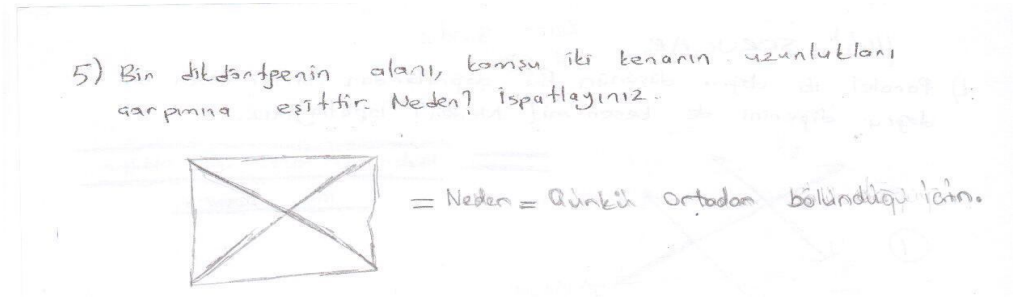 5) Bir dikdörtgenin alanı, komşu iki kenarın uzunlukları
çarpımına eşittir. Neden? İspatlayınız.
= Neden = Çünkü ortadan bölündüğü için.